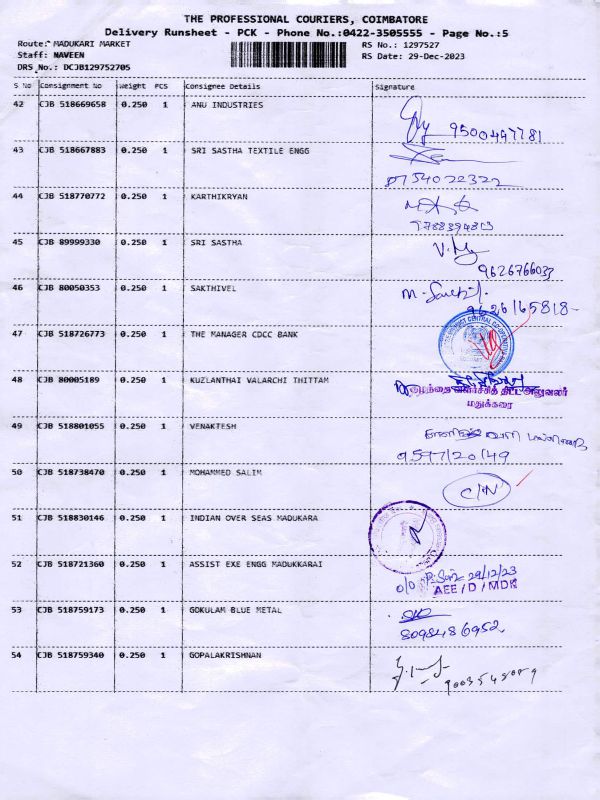 THE PROFESSIONAL COURIERS, COIMBATORE
Delivery Runsheet - PCK - Phone No.:0422-3505555 - Page No.:5
Route: MADUKARI MARKET RS No.: 1297527
Staff: NAVEEN RS Date: 29-Dec-2023
DRS No.: DCJB129752705
S No Consignment No Weight PCS Consignee Details Signature
42 CJB 518669658 0.250 1 ANU INDUSTRIES
9500497781
43 CJB 518667883 0.250 1 SRI SASTHA TEXTILE ENGG
8754022322
44 CJB 518770772 0.250 1 KARTHIKRYAN
45 CJB 89999330 0.250 1 SRI SASTHA
9626766033
46 CJB 80050353 0.250 1 SAKTHIVEL
9626165818
47 CJB 518726773 0.250 1 THE MANAGER CDCC BANK
48 CJB 80005189 0.250 1 KUZLANTHAI VALARCHI THITTAM
குழந்தை வளர்ச்சித் திட்ட அலுவலர்
மதுக்கரை
49 CJB 518801055 0.250 1 VENAKTESH
9597120149
50 CJB 518738470 0.250 1 MOHAMMED SALIM
C/N
51 CJB 518830146 0.250 1 INDIAN OVER SEAS MADUKARA
52 CJB 518721360 0.250 1 ASSIST EXE ENGG MADUKKARAI
29/12/23
O/O AEE / D / MDK
53 CJB 518759173 0.250 1 GOKULAM BLUE METAL
8098486952
54 CJB 518759340 0.250 1 GOPALAKRISHNAN
9003548059